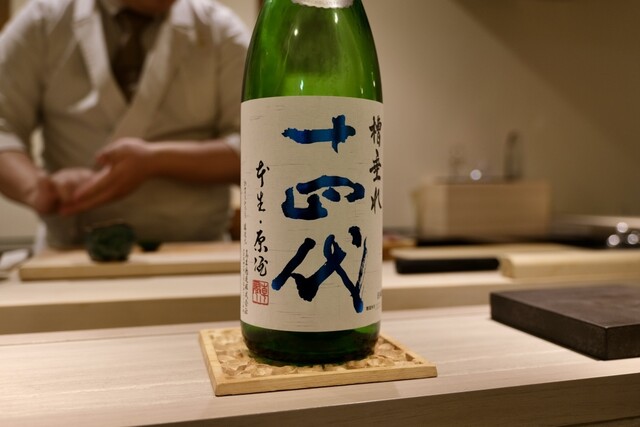 槽垂れ
十四代
本生・原酒